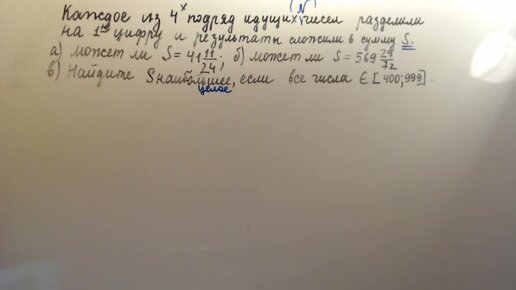 Каждое из 4ˣ подряд идущих (N) чисел разделили
на 1ую цифру и результаты сложили в сумму S.
а) может ли S = 41 11/24; б) может ли S = 569 29/72
в) Найдите S наибольшее, если все числа ∈ [400; 999].
целое